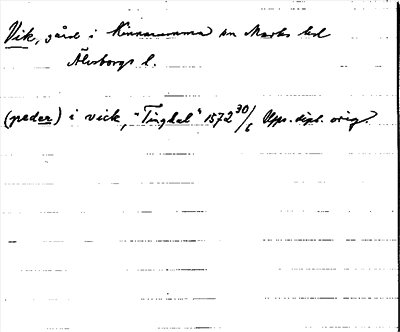 Vik, gård i Kinnarumma sn Marks hd
Älvborgs l.
(peder) i vick, "Tinghel" 1572 30/6 Upps. dipl. orig.